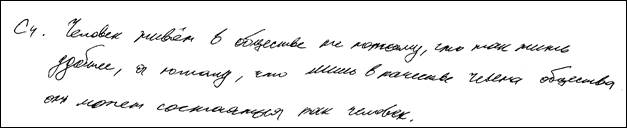 С4. Человек живёт в обществе не потому, что так жить
удобнее, а потому, что лишь в качестве члена общества
он может состояться как человек.